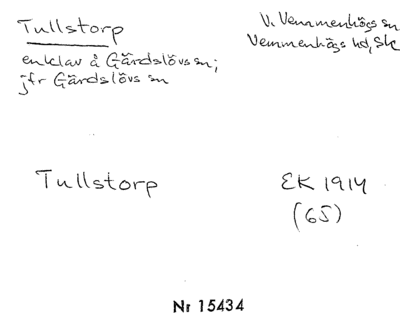 Tullstorp
V. Vemmenhögs sn
Vemmenhögs hd, Sk
enklav å Gärdslövs sn;
jfr Gärdslövs sn
Tullstorp
EK 1914
(65)
Nr 15434